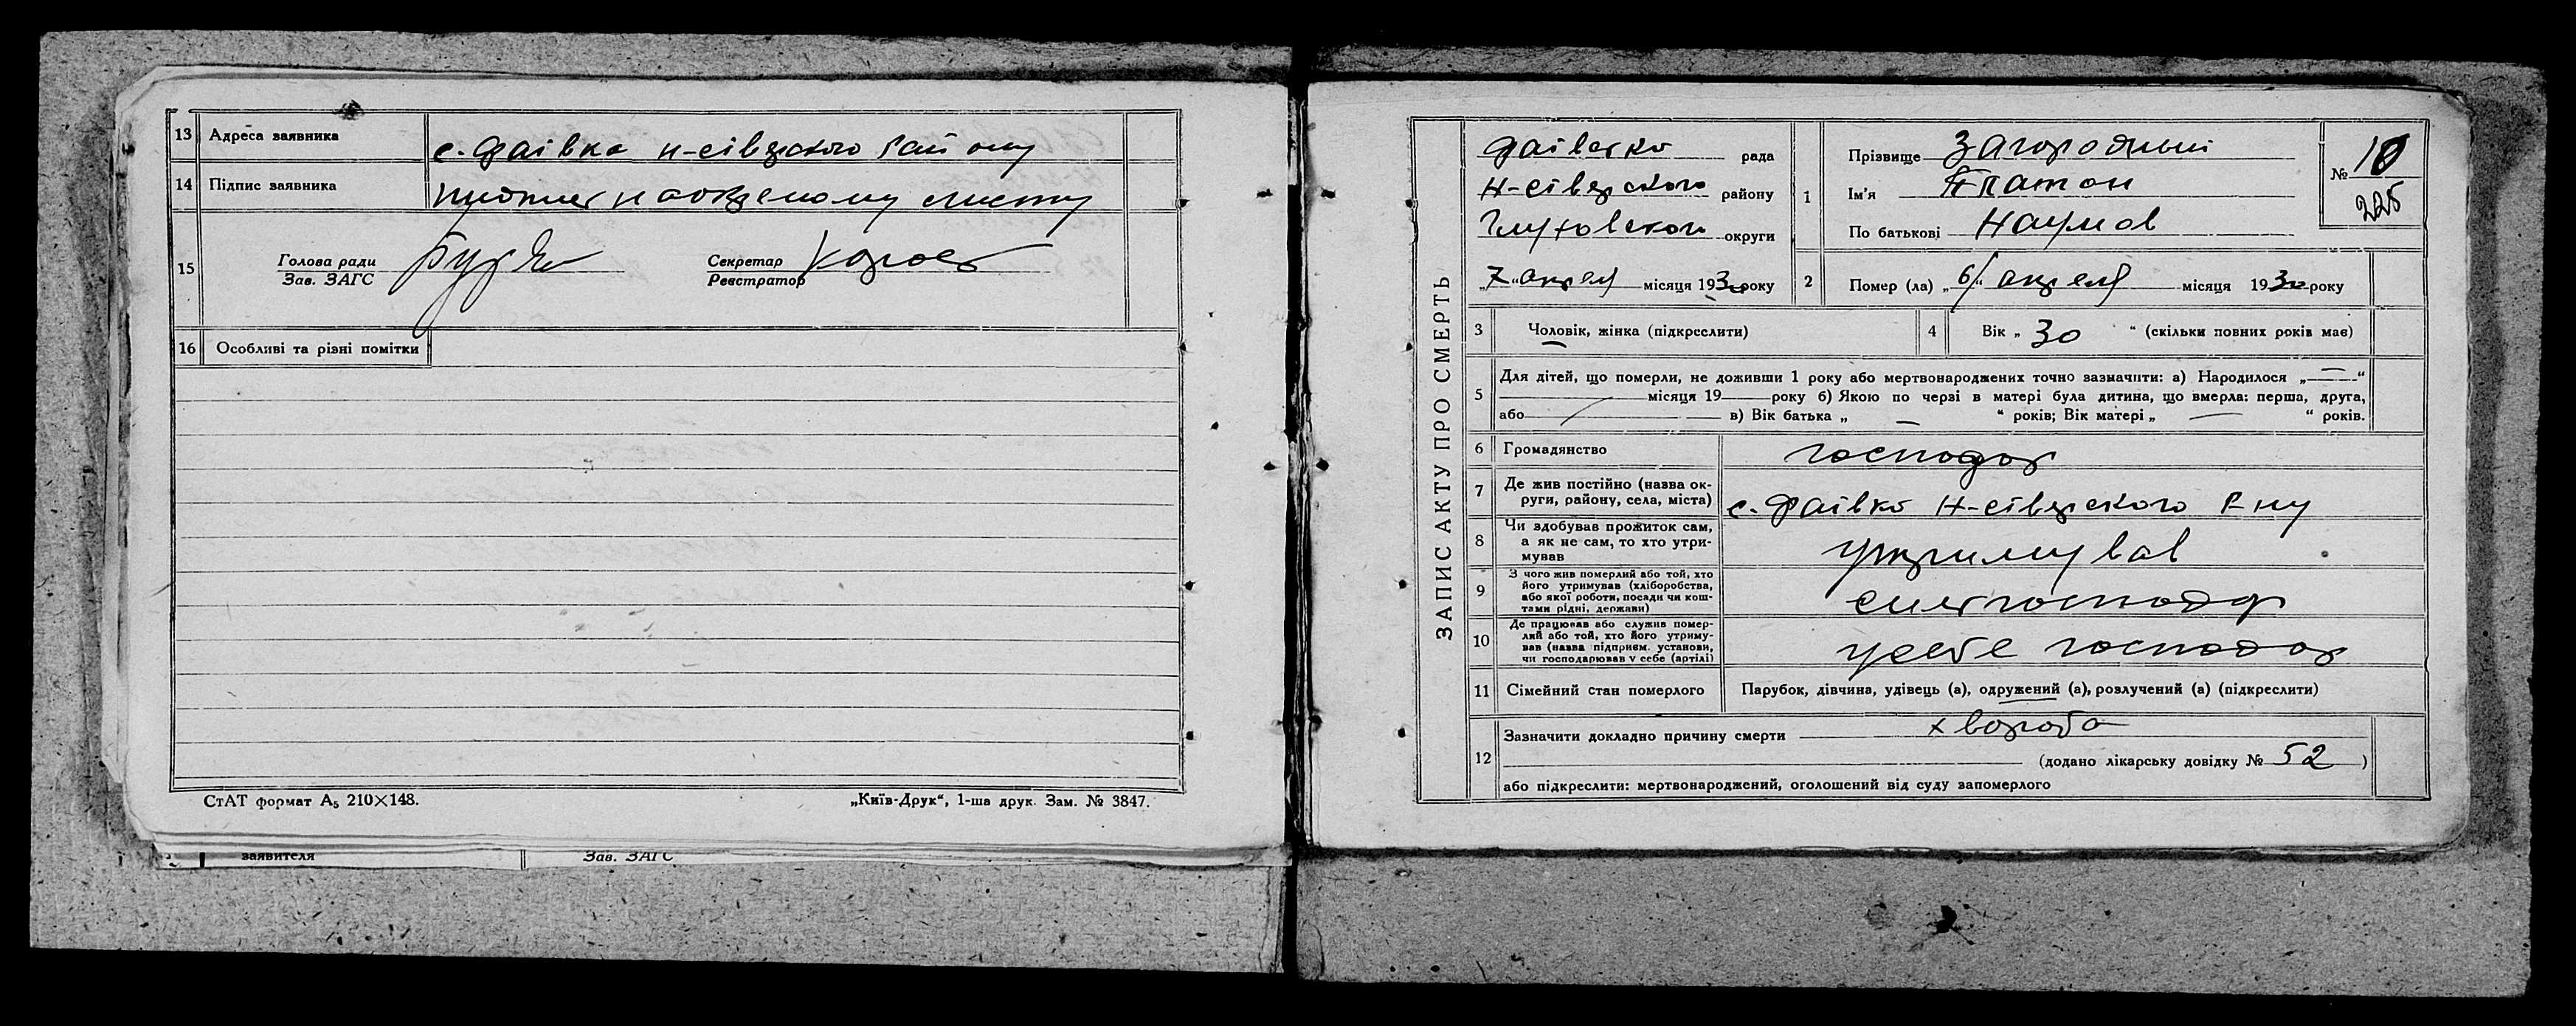 13 Адреса заявника с. Фаівка Н-сіверского Району
14 Підпис заявника
15 Голова ради Секретар
Зав. ЗАГС Реєстратор
16 Особливі та різні помітки
СтАТ формат А₅ 210×148. „Київ-Друк“, 1-ша друк. Зам. № 3847.
заявителя Зав. ЗАГС
ЗАПИС АКТУ ПРО СМЕРТЬ
Фаівска рада
Н-сіверского району
Глуховского округи
„7“ апреля місяця 1930 року
1 Прізвище Загородный
Ім'я Платон
По батькові Наумов
№ 10
225
2 Помер (ла) „6“ апреля місяця 1930 року
3 Чоловік, жінка (підкреслити)
4 Вік „ 30 “ (скільки повних років має)
5 Для дітей, що померли, не доживши 1 року або мертвонароджених точно зазначити: а) Народилося „—“
місяця 19 року б) Якою по черзі в матері була дитина, що вмерла: перша, друга,
або в) Вік батька „ — “ років; Вік матері „ — “ років.
6 Громадянство господар
7 Де жив постійно (назва ок-
руги, району, села, міста) с. Фаівка Н-сіверского Р-ну
8 Чи здобував прожиток сам,
а як не сам, то хто утри-
мував утримував
9 З чого жив померлий або той, хто
його утримував (хліборобства,
або якої роботи, посади чи кош-
тами рідні, держави)
10 Де працював або служив помер-
лий або той, хто його утриму-
вав (назва підприєм. установи,
чи господарював у себе (артілі) у себе господар
11 Сімейний стан померлого Парубок, дівчина, удівець (а), одружений (а), розлучений (а) (підкреслити)
12 Зазначити докладно причину смерти хвороба
(додано лікарську довідку № 52 )
або підкреслити: мертвонароджений, оголошений від суду запомерлого